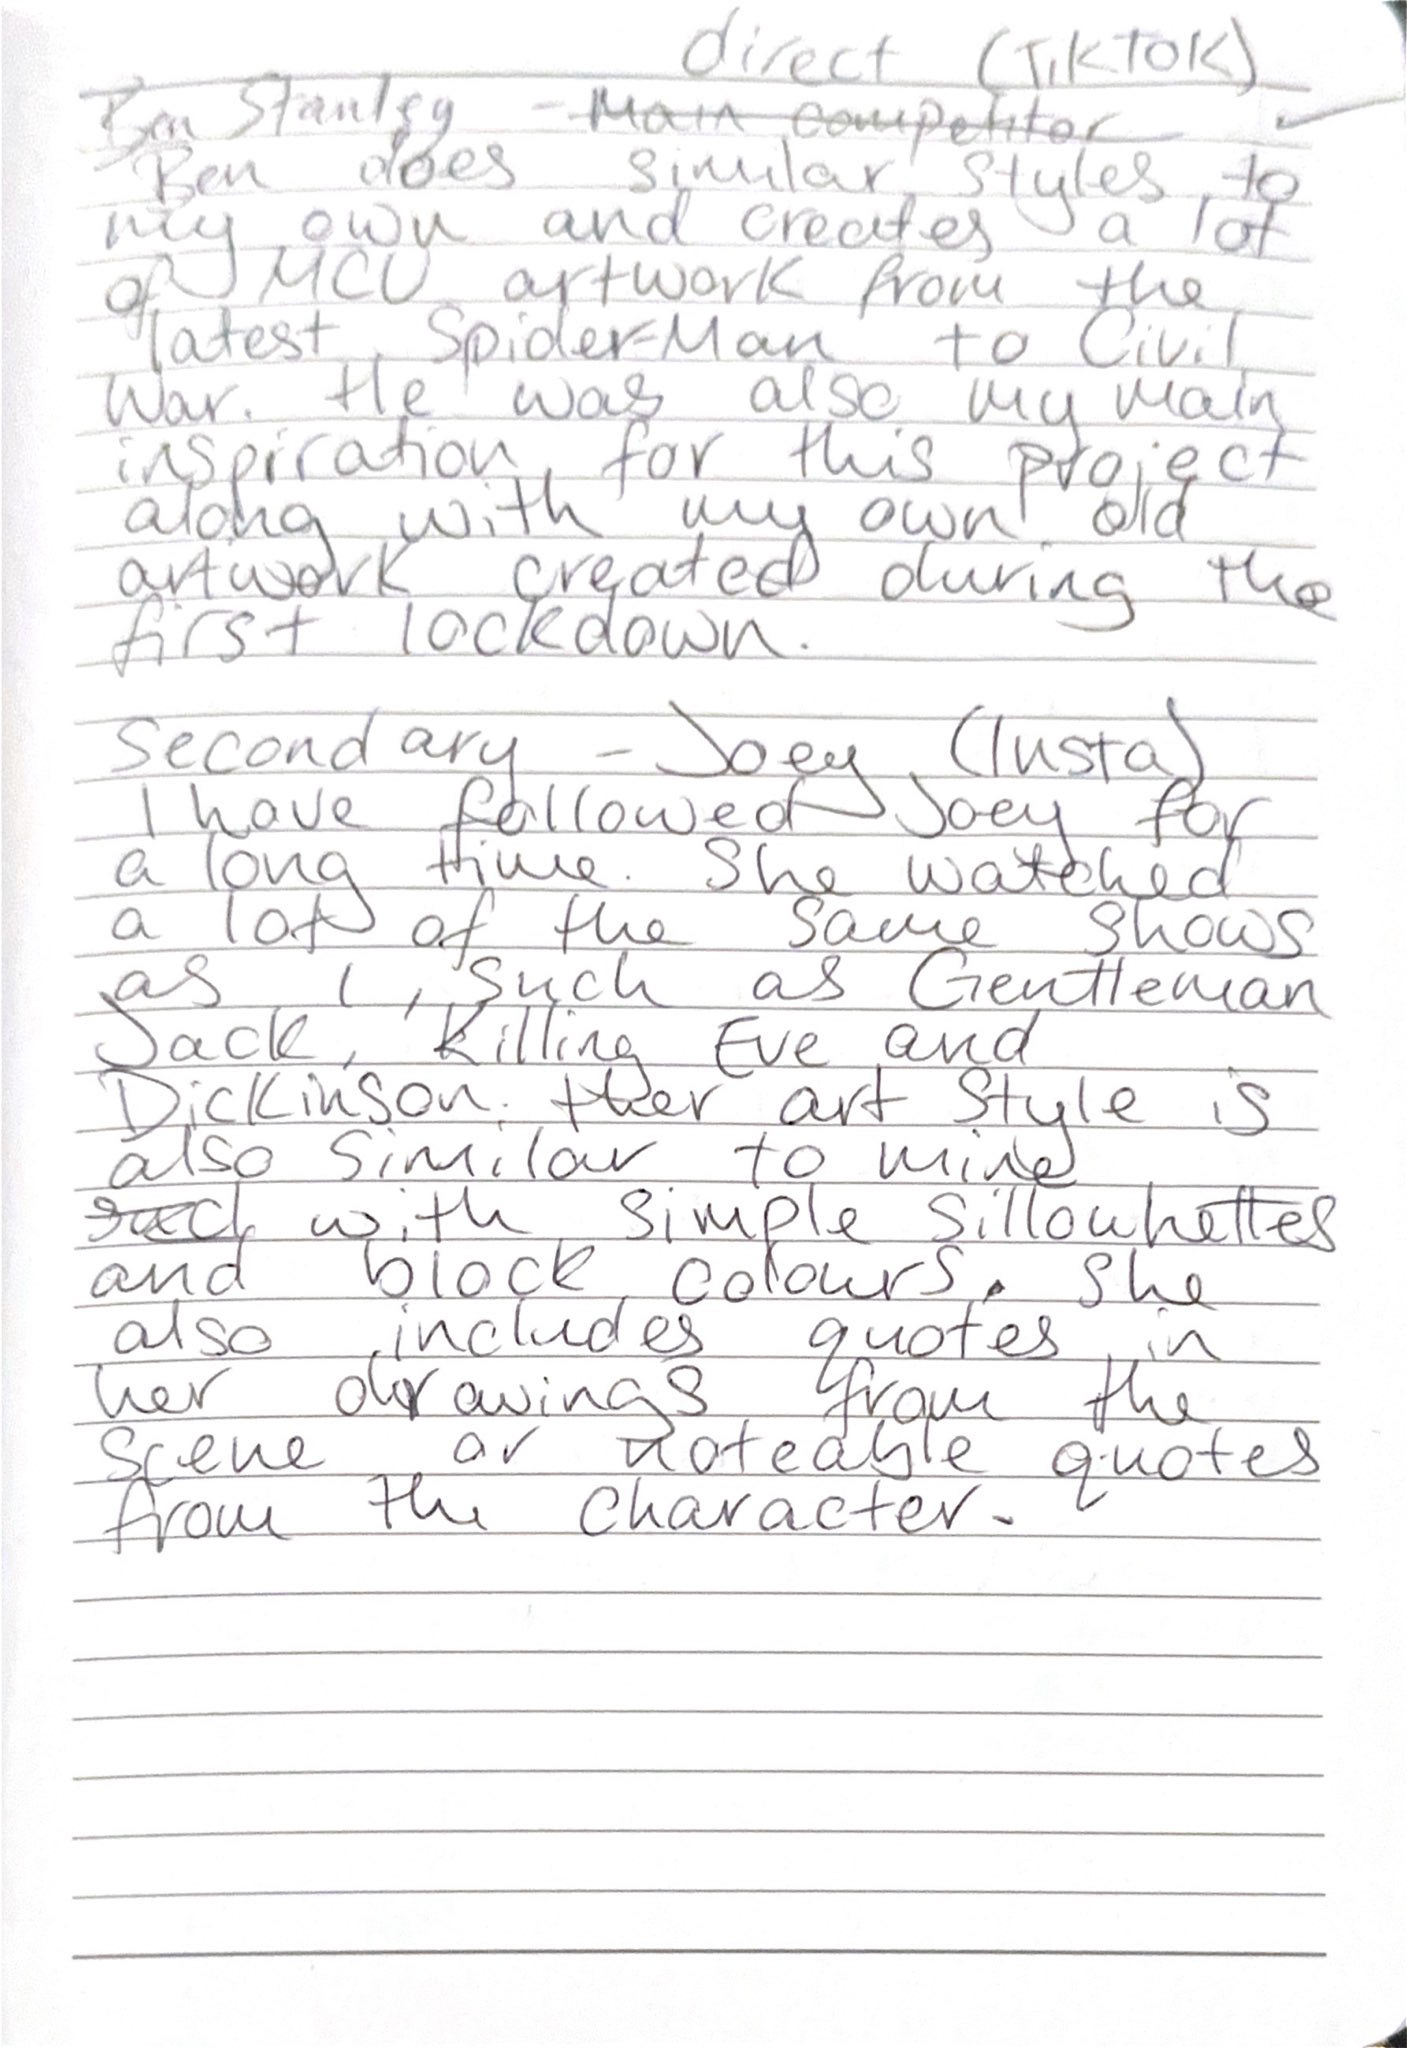 direct (TikTok)
Ben Stanley - Main competitor
Ben does similar styles to
my own and creates a lot
of MCU artwork from the
latest Spider-Man to Civil
War. He was also my main
inspiration for this project
along with my own old
artwork created during the
first lockdown.
Secondary - Joey (Insta)
I have followed Joey for
a long time. She watched
a lot of the same shows
as I, such as Gentleman
Jack, Killing Eve and
Dickinson. Her art style is
also similar to mine
with simple sillouhettes
and block colours. She
also includes quotes in
her drawings from the
scene or noteable quotes
from the character.